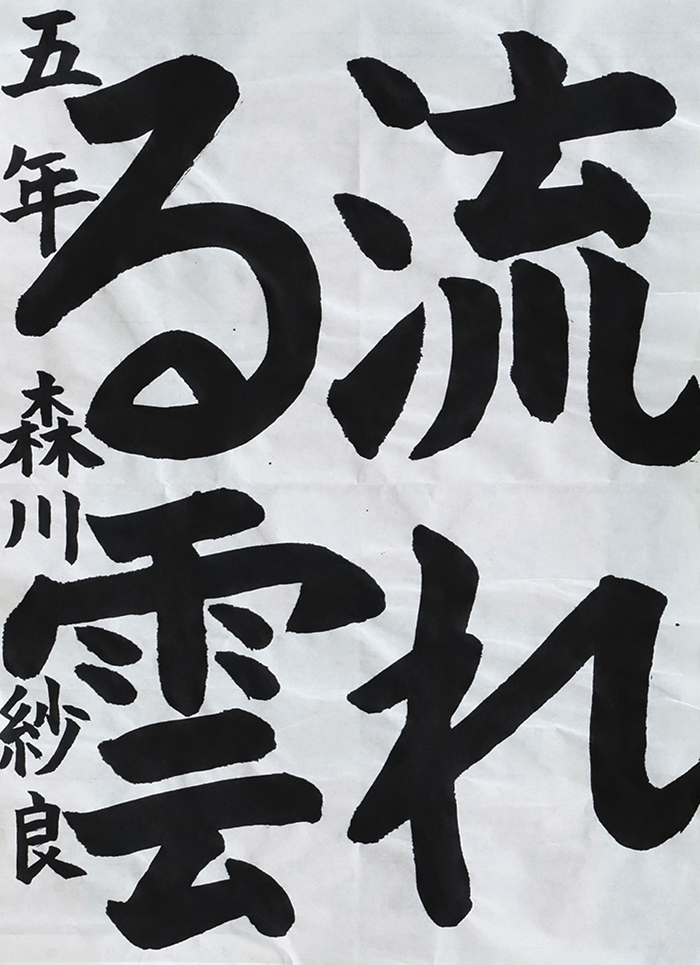 流れ
る雲
五年 森川紗良